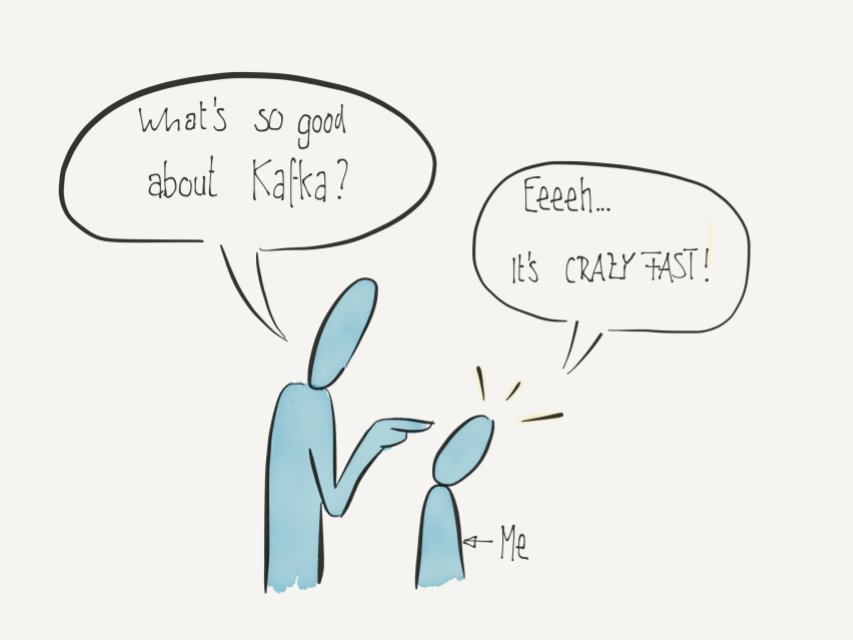 What's so good
about Kafka?
Eeeeh...
It's CRAZY FAST!
Me